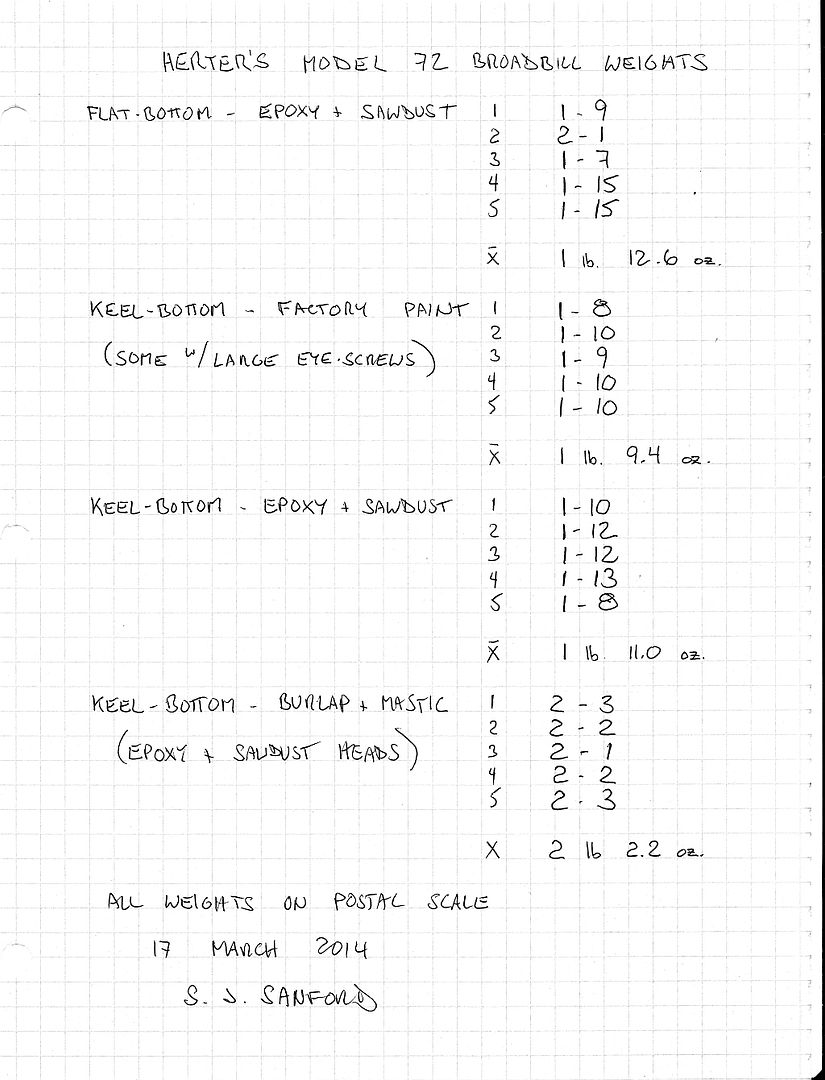 HERTER'S MODEL 72 BROADBILL WEIGHTS
FLAT-BOTTOM - EPOXY + SAWDUST 1 1-9
2 2-1
3 1-7
4 1-15
5 1-15
X̄ 1 lb. 12.6 oz.
KEEL-BOTTOM - FACTORY PAINT 1 1-8
2 1-10
(SOME W/LARGE EYE-SCREWS) 3 1-9
4 1-10
5 1-10
X̄ 1 lb. 9.4 oz.
KEEL-BOTTOM - EPOXY + SAWDUST 1 1-10
2 1-12
3 1-12
4 1-13
5 1-8
X̄ 1 lb. 11.0 oz.
KEEL-BOTTOM - BURLAP + MASTIC 1 2-3
2 2-2
(EPOXY + SAWDUST HEADS) 3 2-1
4 2-2
5 2-3
X 2 lb 2.2 oz.
ALL WEIGHTS ON POSTAL SCALE
17 MARCH 2014
S. J. SANFORD